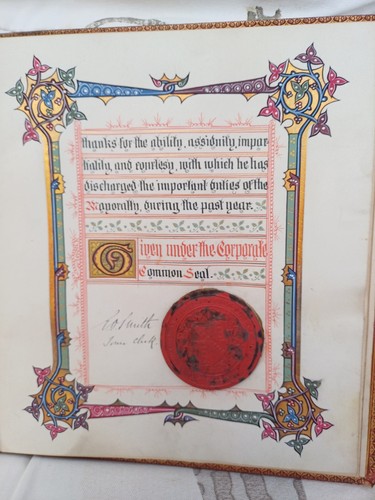 thanks for the ability, assiduity, impar
tiality, and courtesy, with which he has
discharged the important duties of the
Mayoralty, during the past year.
Given under the Corporate
Common Seal.
Smith
Town Clerk.